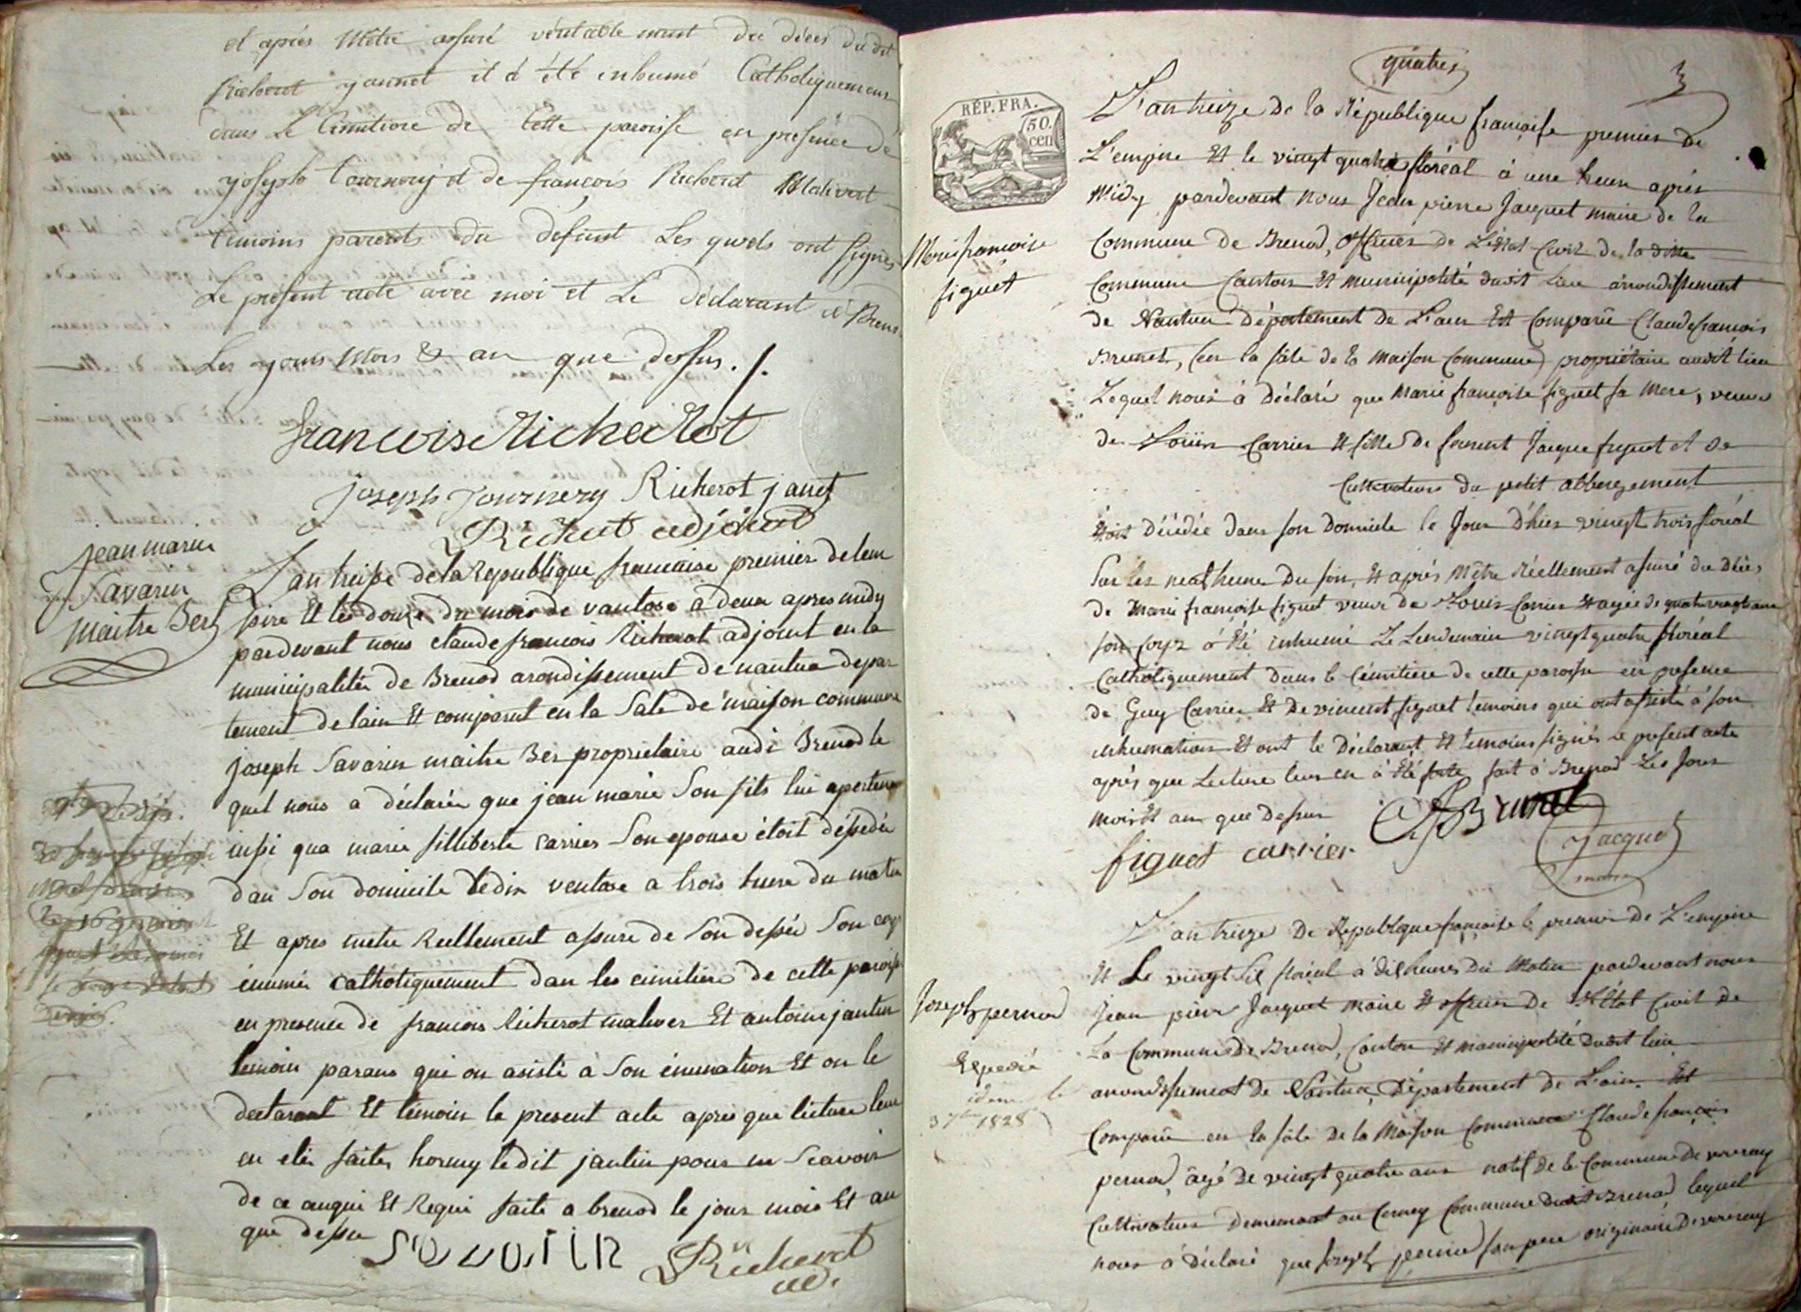 et après m'être assuré véritablement du décès dudit
Richerot yannet il a été inhumé Catholiquement
dans Le Cimitiere de Cette paroisse en présence de
yoseph tournery et de francois Richerot Malivert
témoins parents du défunt Les quels ont signés
Le present acte avec moi et Le Déclarant à Breno
Les yours Mois & an que dessus ./.
francois Richerot
Joseph Tournery Richerot janet
Richerot adjoint
jean marie
Savarin
maitre Ber
Lan treise de la Republique francaise premier de lem
pire Et le douze du mois de vantose a deux apres midy
pardevant nous claude francois Richerot adjoint en la
municipalitée de Brenod arondissement de nantua depar
tement de lain Et comparut en la Sale de maison commune
joseph Savarin maitre Ber proprietaire audi Brenod le
quel nous a déclarée que jean marie Son fils lui apertena
insi qua marie filliberte carrier Son epouse étoit dessedée
dan Son domicile Ledix ventose a trois heure du matin
Et apres metre Reellement assure de Son dessée Son corp
énumée catholiquement dan les cimitiere de cette paroisse
en presence de francois Richerot maliver Et antoine jantin
temoin parans qui on asiste a Son énumation Et on le
declarant Et temoin le present acte apres que lecture leur
en etée faites hormy ledit jantin pour ne Scavoir
de ce anqui Et Requi faite a brenod le jour mois Et an
que dessu
SAVARIN Richerot
ad.
quatre
3
REP. FRA.
50.
cen
Marie françoise
figuet
L'an treize de la République françoise premier de
L'empire Et le vingt quatre floréal à une heure après
Midy pardevant nous Jean pierre Jacquet maire de la
Commune de Brenod, officier de L'état Civil de la ditte
Commune Canton Et municipalité dudit lieu arrondissement
de Nantua département de L'ain Est Comparu Claude françois
Brunet, (en la sale de la maison Commune) propriétaire audit lieu
Lequel nous à déclaré que Marie françoise figuet sa Mere, veuve
de Louis Carrier Et fille de Jacque figuet et de
Cultivateurs du petit abbergement
étoit décédée dans son domicile le Jour d'hier vingt trois floréal
Sur les neuf heure du soir, Et après m'être Réellement assuré du décès
de Marie françoise figuet veuve de Louis Carrier Et agée de quatrevingt ans
son Corps à été inhumé Le Lendemain vingt quatre floréal
Catholiquement dans le Cémitiere de cette paroisse en presence
de Guy Carrier Et de vincent figuet temoins qui ont assisté à son
inhumation Et ont le Déclarant Et temoins signés le present acte
après que Lecture leur en à été faite, fait à Brenod Les Jour
mois Et an que Dessus
CF Brunet
figuet carrier
Jacquet
maire
Joseph pernod
Expedié
le
3 7bre 1828
L'an treize De République françoise le premier de L'empire
Et Le vingt Six floréal à dix heures Du Matin pardevant nous
Jean pierre Jacquet Maire Et officier De L'état Civil de
La Commune De Brenod, Canton Et municipalité dudit lieu
arrondissement de Nantua Département de L'ain Est
Comparu en la sale de la Maison Commune Claude françois
pernod, âgé De vingt quatre ans natif de la Commune De
Cultivateur demeurant au Cerney Commune dudit Brenod lequel
nous à déclaré que Joseph pernod son pere originaire De